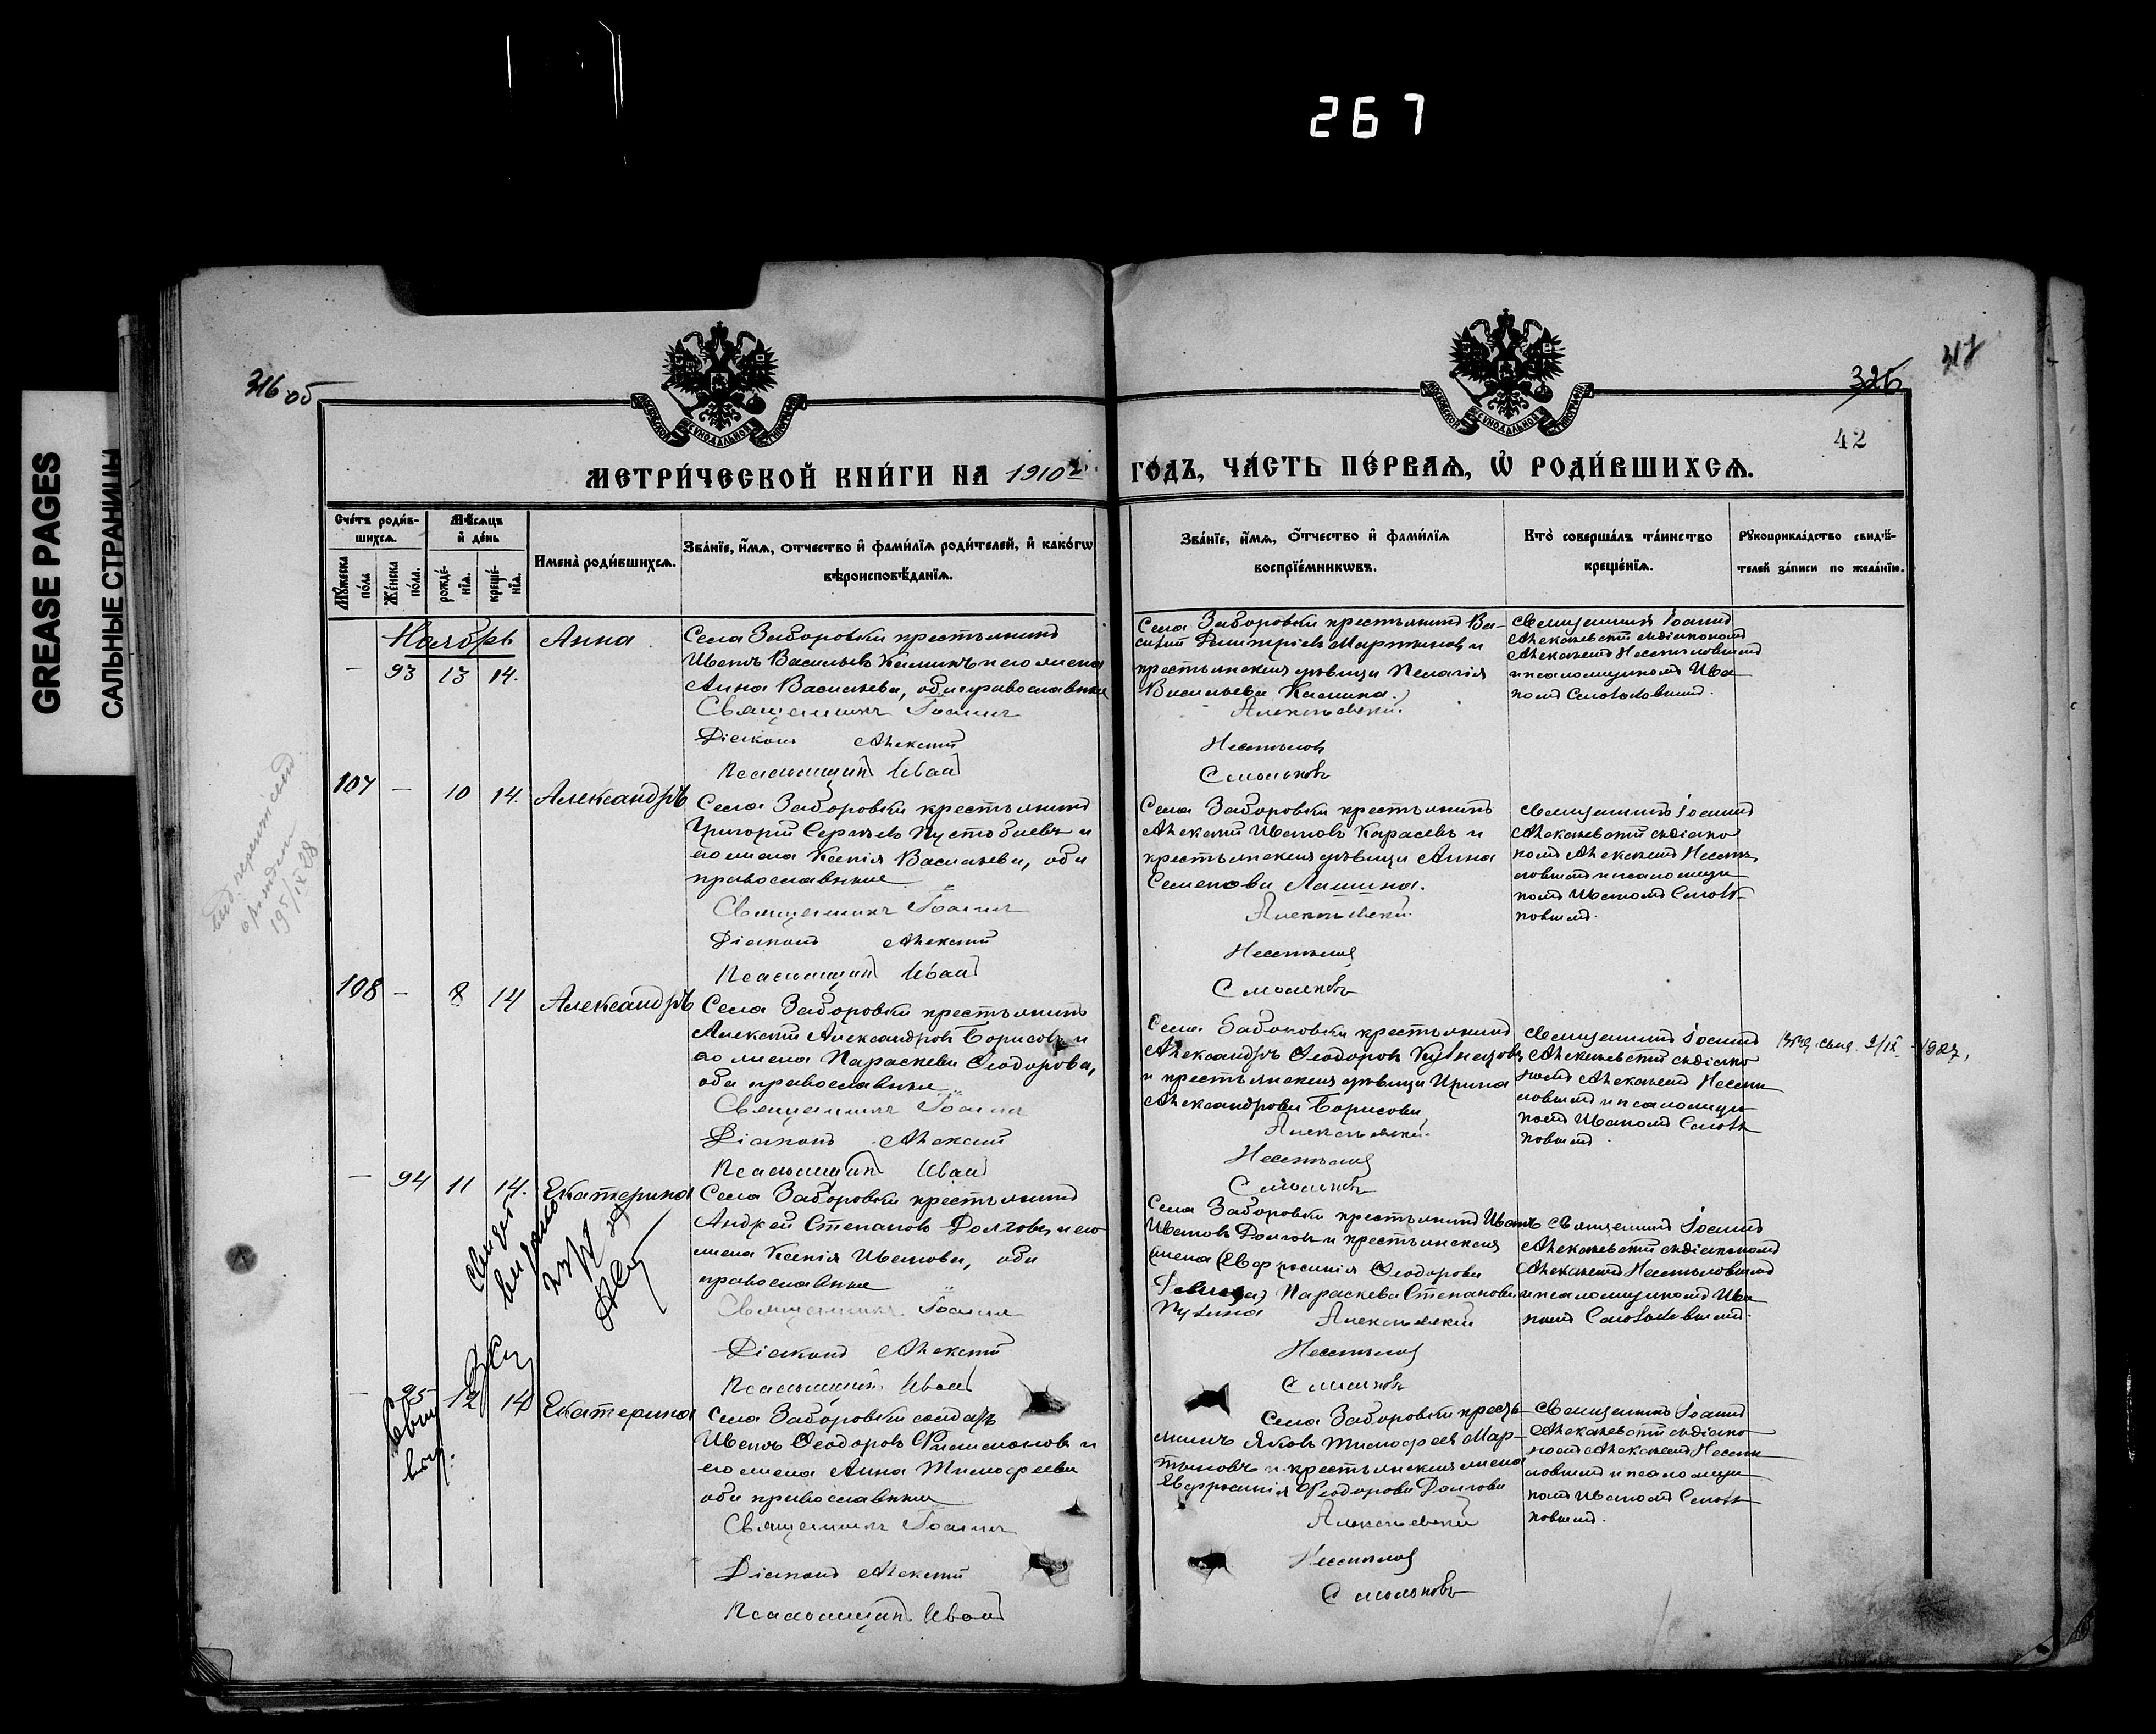 267
GREASE PAGES
САЛЬНЫЕ СТРАНИЦЫ
316 об
326
317
42
МЕТРИ́ЧЕСКОЙ КНИ́ГИ НА 1910 г.
ГО́ДЪ, ЧА́СТЬ ПЕ́РВАѦ, Ѽ РОДИ́ВШИХСѦ.
Сче́тъ роди́в-
шихсѧ.
Мѣ́сѧцъ
и҆ де́нь
Мꙋ́жеска
по́ла
Же́нска
по́ла.
рожде́-
нїѧ.
креще́-
нїѧ.
Имена̀ роди́вшихсѧ.
Зва́нїе, и҆́мѧ, ѻ҆́тчество и҆ фами́лїѧ роди́телей, и҆ како́гѡ
вѣроисповѣ́данїѧ.
Зва́нїе, и҆́мѧ, ѻ҆́тчество и҆ фами́лїѧ
воспрїе́мникѡвъ.
Кто̀ соверша́лъ та́инство
креще́нїѧ.
Рꙋкоприкла́дство свидѣ́-
телей за́писи по жела́нїю.
Ноябрь
— 93 13 14. Анна
Села Заборовки крестьянинъ
Иванъ Васильевъ Калинъ и его жена
Анна Васильева, оба православные
Священникъ Іоаннъ
Діаконъ Алексій
Псаломщикъ Иванъ
Села Заборовки крестьянинъ Ва-
силій Димитріевъ Мартыновъ и
крестьянская дѣвица Пелагія
Васильева Калина.
Алексѣевскій
Несмѣловъ
Смольковъ
Священникъ Іоаннъ
Алексѣевскій съ діакономъ
Алексѣемъ Несмѣловымъ
и псаломщикомъ Ива-
номъ Смольковымъ.
107 — 10 14. Александръ
Села Заборовки крестьянинъ
Григорій Сергѣевъ Пустобаевъ и
его жена Ксенія Васильева, оба
православные
Священникъ Іоаннъ
Діаконъ Алексій
Псаломщикъ Иванъ
Села Заборовки крестьянинъ
Алексій Ивановъ Карасевъ и
крестьянская дѣвица Анна
Семенова Лашина.
Алексѣевскій
Несмѣловъ
Смольковъ
Священникъ Іоаннъ
Алексѣевскій съ діако-
номъ Алексѣемъ Несмѣ-
ловымъ и псаломщи-
комъ Иваномъ Смоль-
ковымъ.
108 — 8 14 Александръ
Села Заборовки крестьянинъ
Алексій Александровъ Борисовъ и
его жена Параскева Ѳеодорова,
оба православные
Священникъ Іоаннъ
Діаконъ Алексій
Псаломщикъ Иванъ
Села Заборовки крестьянинъ
Александръ Ѳеодоровъ Кузнецовъ
и крестьянская дѣвица Ирина
Александрова Борисова
Алексѣевскій
Несмѣловъ
Смольковъ
Священникъ Іоаннъ
Алексѣевскій съ діако-
номъ Алексѣемъ Несмѣ-
ловымъ и псаломщи-
комъ Иваномъ Смоль-
ковымъ.
— 94 11 14. Екатерина
Села Заборовки крестьянинъ
Андрей Степановъ Долговъ и его
жена Ксенія Иванова, оба
православные
Священникъ Іоаннъ
Діаконъ Алексій
Псаломщикъ Иванъ
Села Заборовки крестьянинъ Иванъ
Ивановъ Долговъ и крестьянская
Евфросинія Ѳеодорова
Параскева Степанова
Алексѣевскій
Несмѣловъ
Смольковъ
Священникъ Іоаннъ
Алексѣевскій съ діакономъ
Алексѣемъ Несмѣловымъ
и псаломщикомъ Ива-
номъ Смольковымъ.
— 95 12 14 Екатерина
Села Заборовки солдатъ
Иванъ Ѳеодоровъ Филимоновъ и
его жена Анна Тимофеева
оба православные
Священникъ Іоаннъ
Діаконъ Алексій
Псаломщикъ Иванъ
Села Заборовки кресть-
янинъ Яковъ Тимофеевъ Мар-
тыновъ и крестьянская жена
Евфросинія Ѳеодорова Долгова
Алексѣевскій
Несмѣловъ
Смольковъ
Священникъ Іоаннъ
Алексѣевскій съ діако-
номъ Алексѣемъ Несмѣ-
ловымъ и псаломщи-
комъ Иваномъ Смоль-
ковымъ.